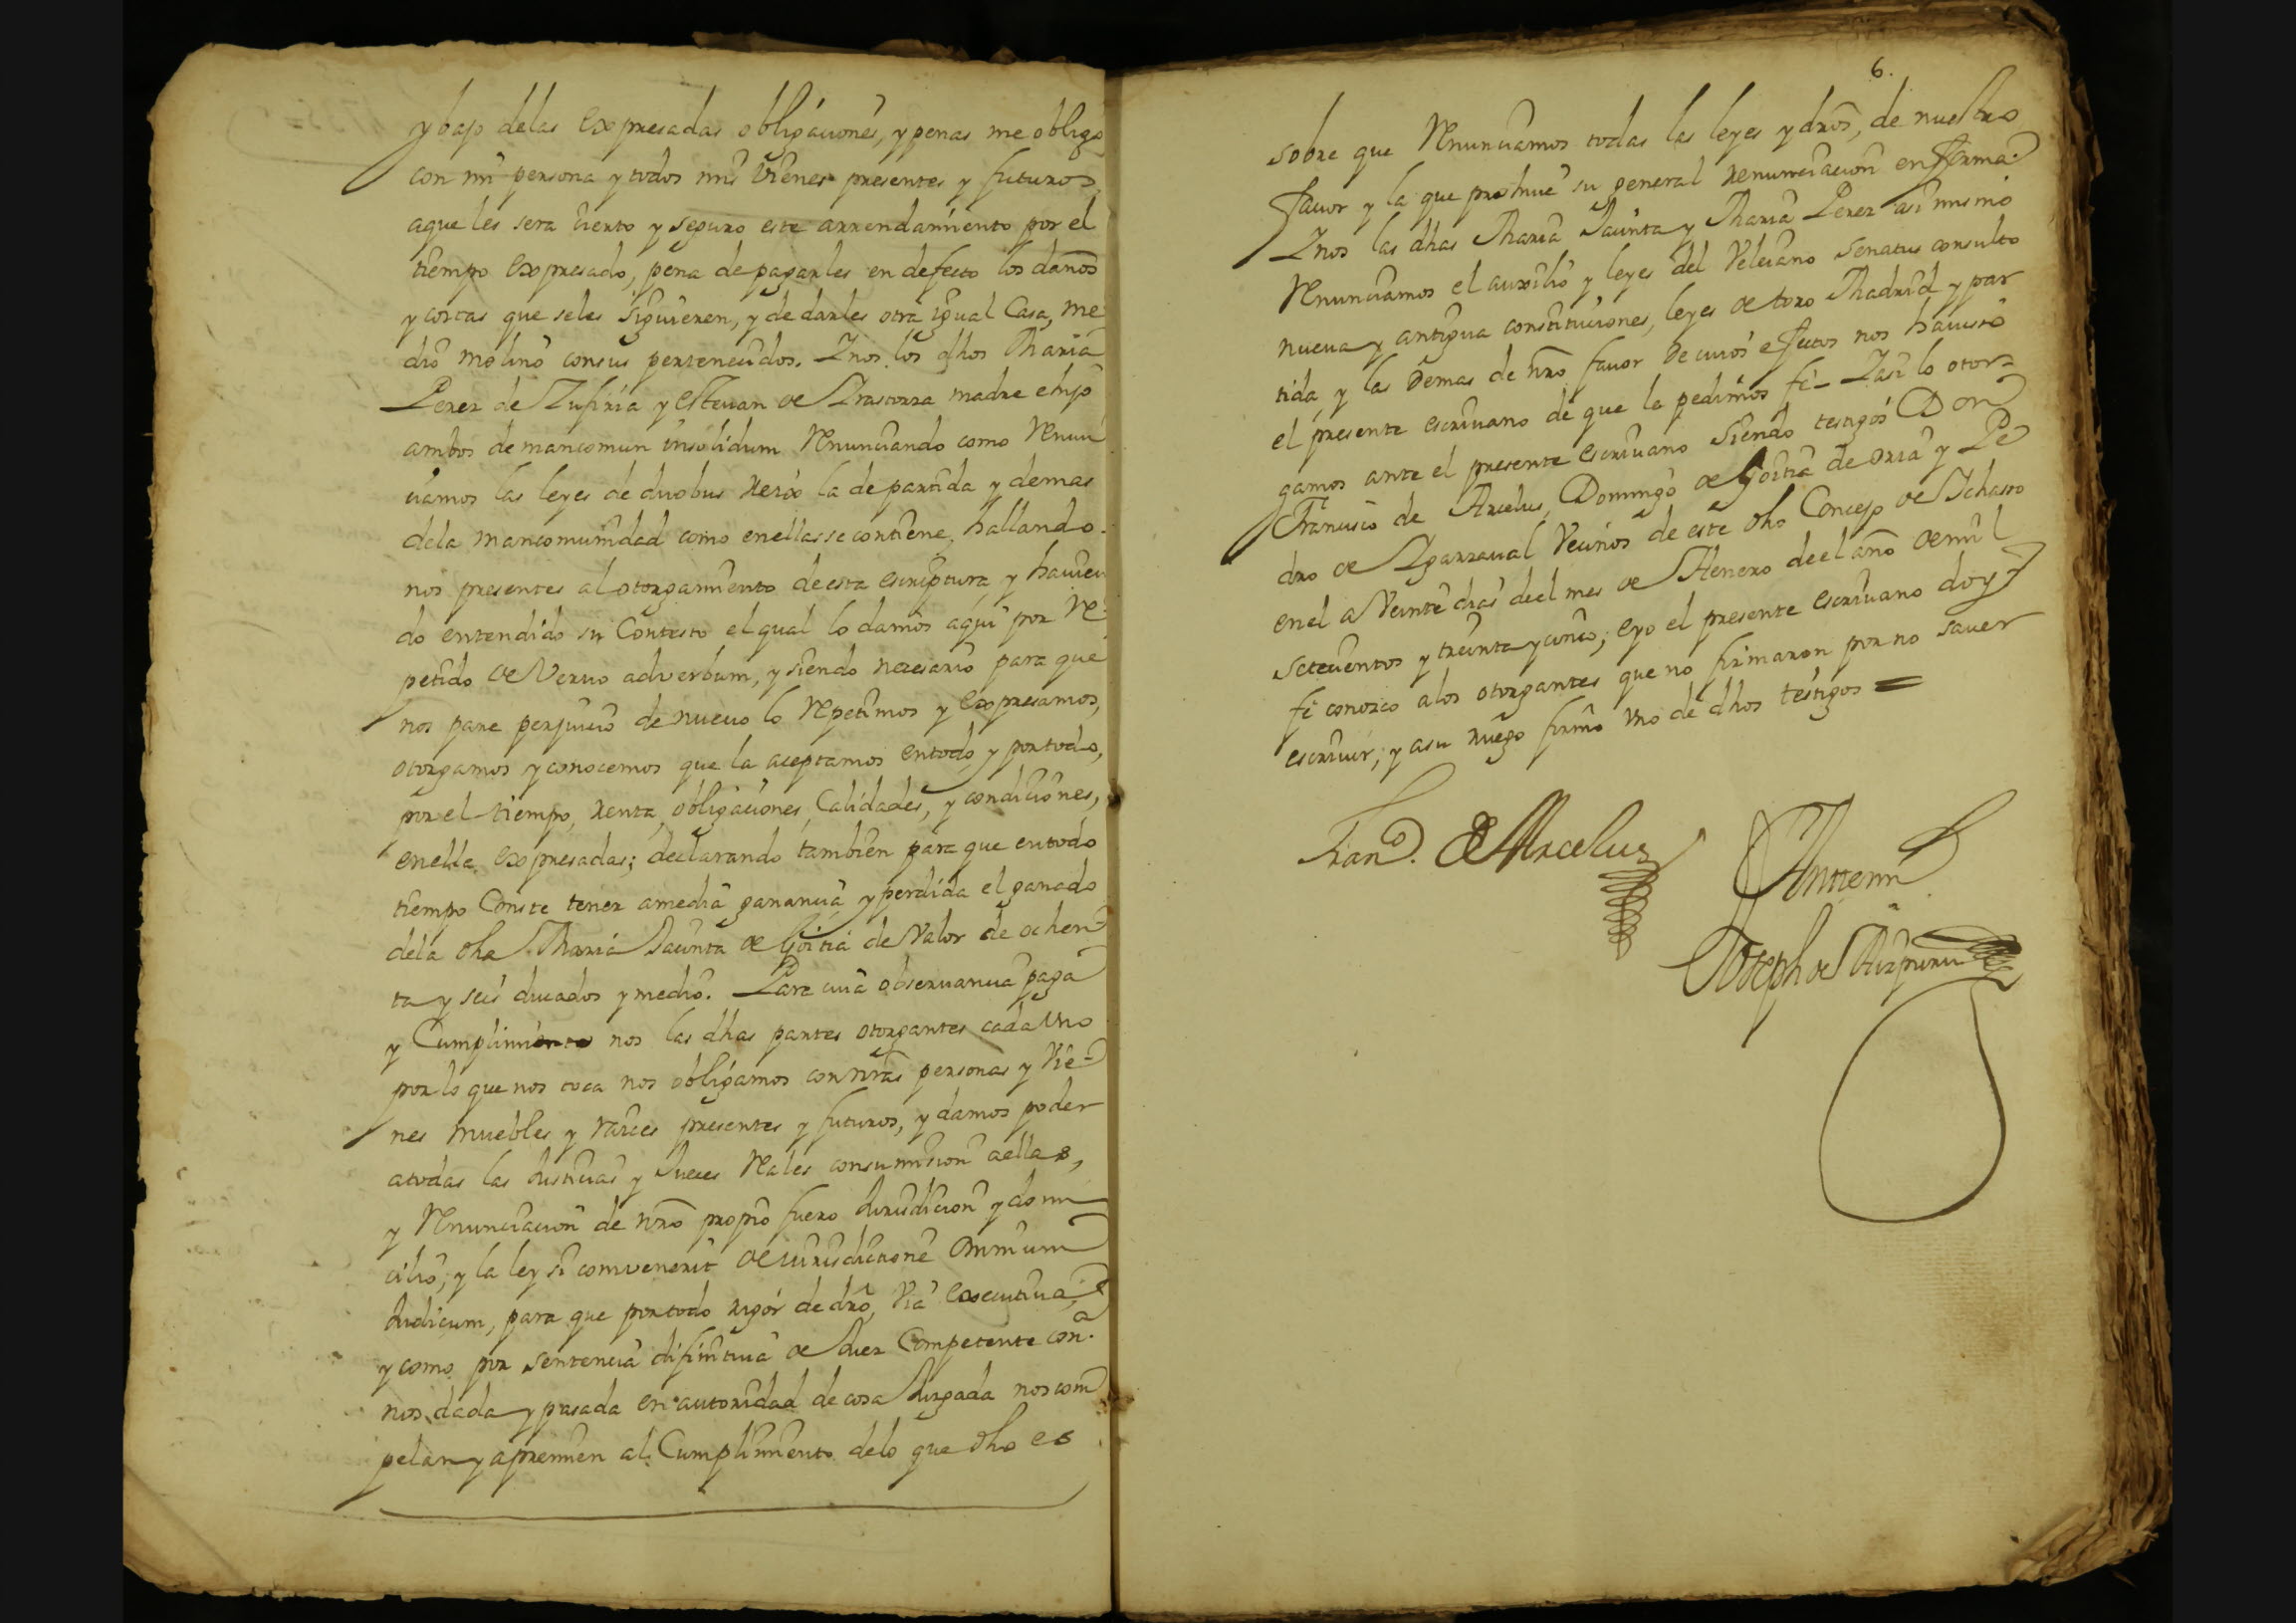 y bajo delas expresadas obligaciones, y penas me obligo
con mi persona y todos mis vienes presentes y futuros,
aque les sera cierto y seguro este arrendamiento por el
tiempo expresado, pena de pagarles en defecto los daños
y costas que seles siguieren, y de darles otra igual Casa, me
dio molino consus pertenecidos. Y nos los dhos Maria
Perez de Zufiria y Estevan de Arastorza madre e hijo
ambos de mancomun insolidum Renunciando como Renun
ciamos las leyes de duobus rex la de partida y demas
dela mancomunidad como enellas se contiene, hallando
nos presentes al otorgamiento de esta escriptura, y havien
do entendido su Contesto el qual lo damos aqui por Re
petido de Vervo adverbum, y siendo necesario para que
nos pare perjuicio de nuevo lo Repetimos y expresamos,
otorgamos y conocemos que la aceptamos entodo, y portodo,
por el tiempo, renta, obligaciones, Calidades, y condiciones,
enella expresadas; declarando tambien para que entodo
tiempo Conste tener amedia ganancia y perdida el ganado
dela dha Maria Jacinta de Goitia de Valor de ochen
ta y seis ducados y medio. Para cuia observancia paga
y Cumplimiento nos las dhas partes otorgantes cada Uno
por lo que nos toca nos obligamos con nras personas y Vie-
nes muebles y raices presentes y futuros, y damos poder
atodas las Justicias y Jueces Reales consumision aellas,
y Renunciacion de nro propio fuero Jurisdicion y domi
cilio, y la ley si convenerit de iurisdictione Omnium
Judicum, para que portodo rigor de dro, Via executiva,
y como por sentencia difinitiva de Juez Competente con
nos dada y pasada en autoridad de cosa Juzgada nos com
pelan y apremien al Cumplimiento delo que dho es
6.
sobre que Renunciamos todas las leyes y dros, de nuestro
favor y la que prohive su general renunciacion en forma.
Y nos las dhas Maria Jacinta y Maria Perez asi mismo
Renunciamos el auxilio y leyes del Veleiano Senatus consulto
nueva y antigua constituciones, leyes de toro Madrid y par
tida, y las demas de nro favor de cuios efectos nos haviso
el presente escrivano de que le pedimos fe- Y asi lo otor-
gamos ante el presente escrivano siendo testigos Don
Francisco de Arcelus, Domingo de Goitia de Oria y Pe
dro de Ygarzaval Vecinos de este dho Concejo de Ichaso
enel a Veinte dias deel mes de Henero deel año de mil
setecientos y treinta y cinco; eyo el presente escrivano doy
fe conozco alos otorgantes que no firmaron por no saver
escrivir; y asu ruego firmo Uno de dhos testigos =
Franco. de Arcelus
Antte mi
Joseph de Aizpuru